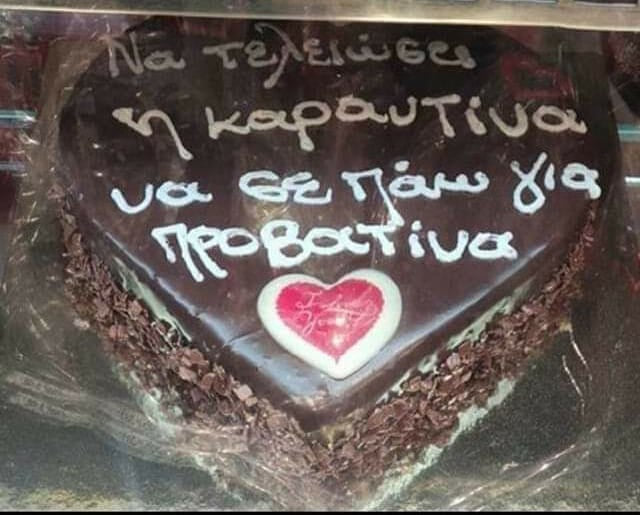 Να τελειώσει
η καραντίνα
να σε πάω για
προβατίνα
I Love
You